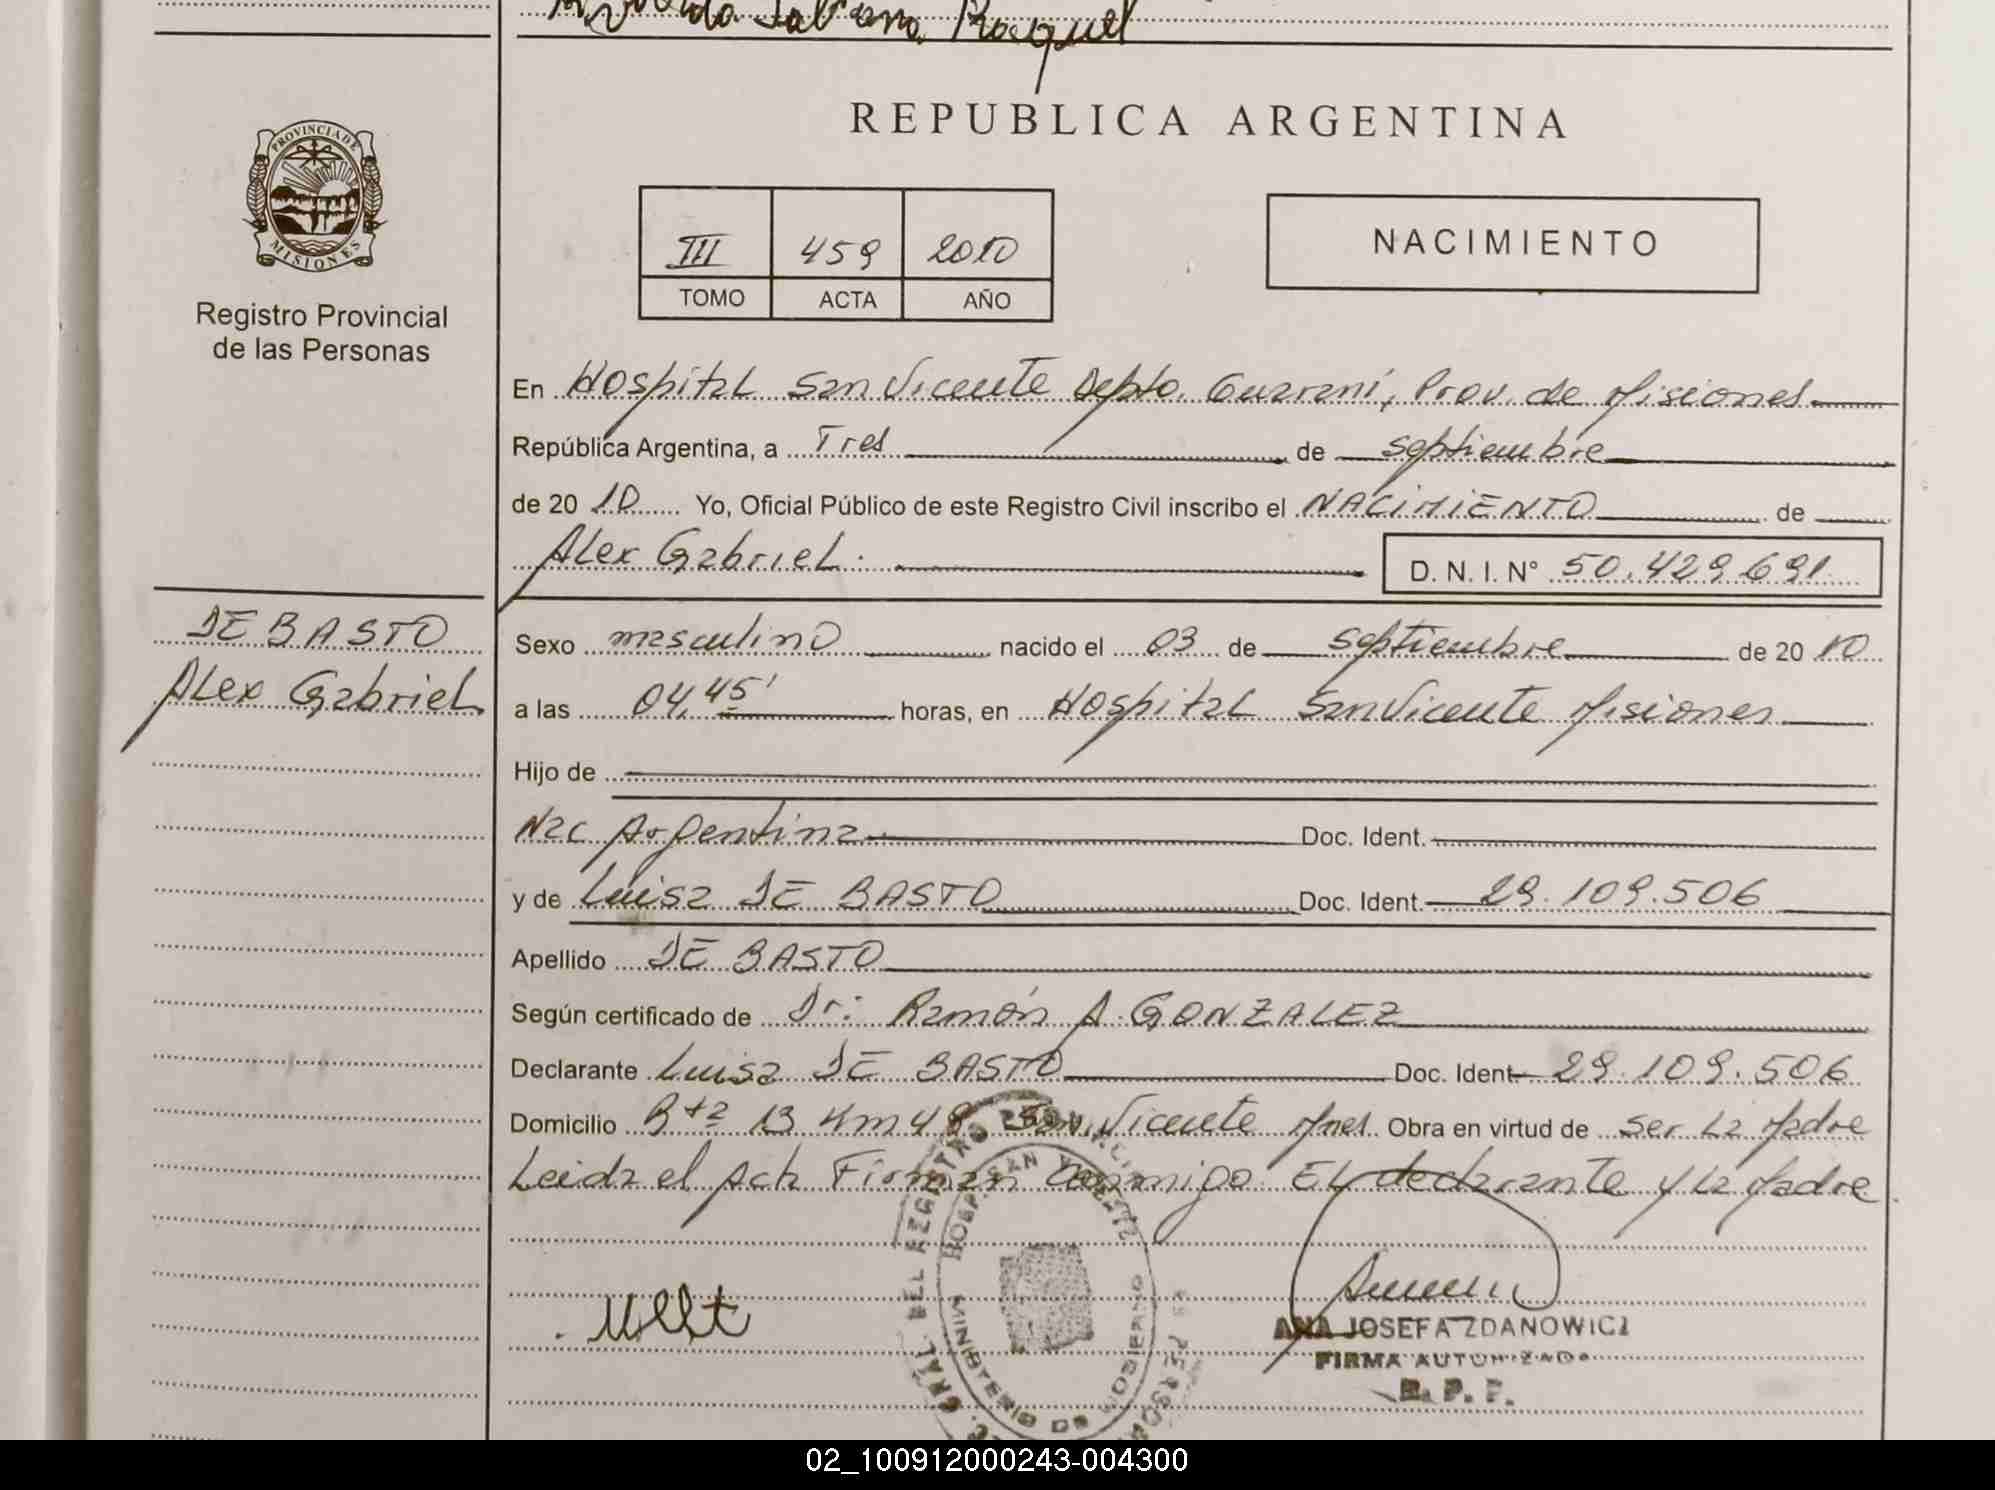 Raquel
REPUBLICA ARGENTINA
PROVINCIA DE
MISIONES
Registro Provincial
de las Personas
III 459 2010
TOMO ACTA AÑO
NACIMIENTO
En Hospital San Vicente Depto. Guaraní, Prov. de Misiones
República Argentina, a Tres de septiembre
de 20 10 Yo, Oficial Público de este Registro Civil inscribo el NACIMIENTO de
Alex Gabriel.
D. N. I. N° 50.429.691
DE BASTO
Alex Gabriel
Sexo masculino nacido el 03 de septiembre de 20 10
a las 04.45' horas, en Hospital San Vicente Misiones
Hijo de
Nac Argentina Doc. Ident.
y de Luisa DE BASTO Doc. Ident. 29.109.506
Apellido DE BASTO
Según certificado de Dr: Ramón A. GONZALEZ
Declarante Luisa DE BASTO Doc. Ident 29.109.506
Domicilio Rta 13 Km 48 San Vicente Mnes Obra en virtud de ser La Madre
Leida el Acta Firman Conmigo El declarante y La Madre
HOSP. SAN VICENTE
MINISTERIO DE GOBIERNO
GRAL DEL REGISTRO
ANA JOSEFA ZDANOWICZ
FIRMA AUTORIZADA
R. P. P.
02_100912000243-004300